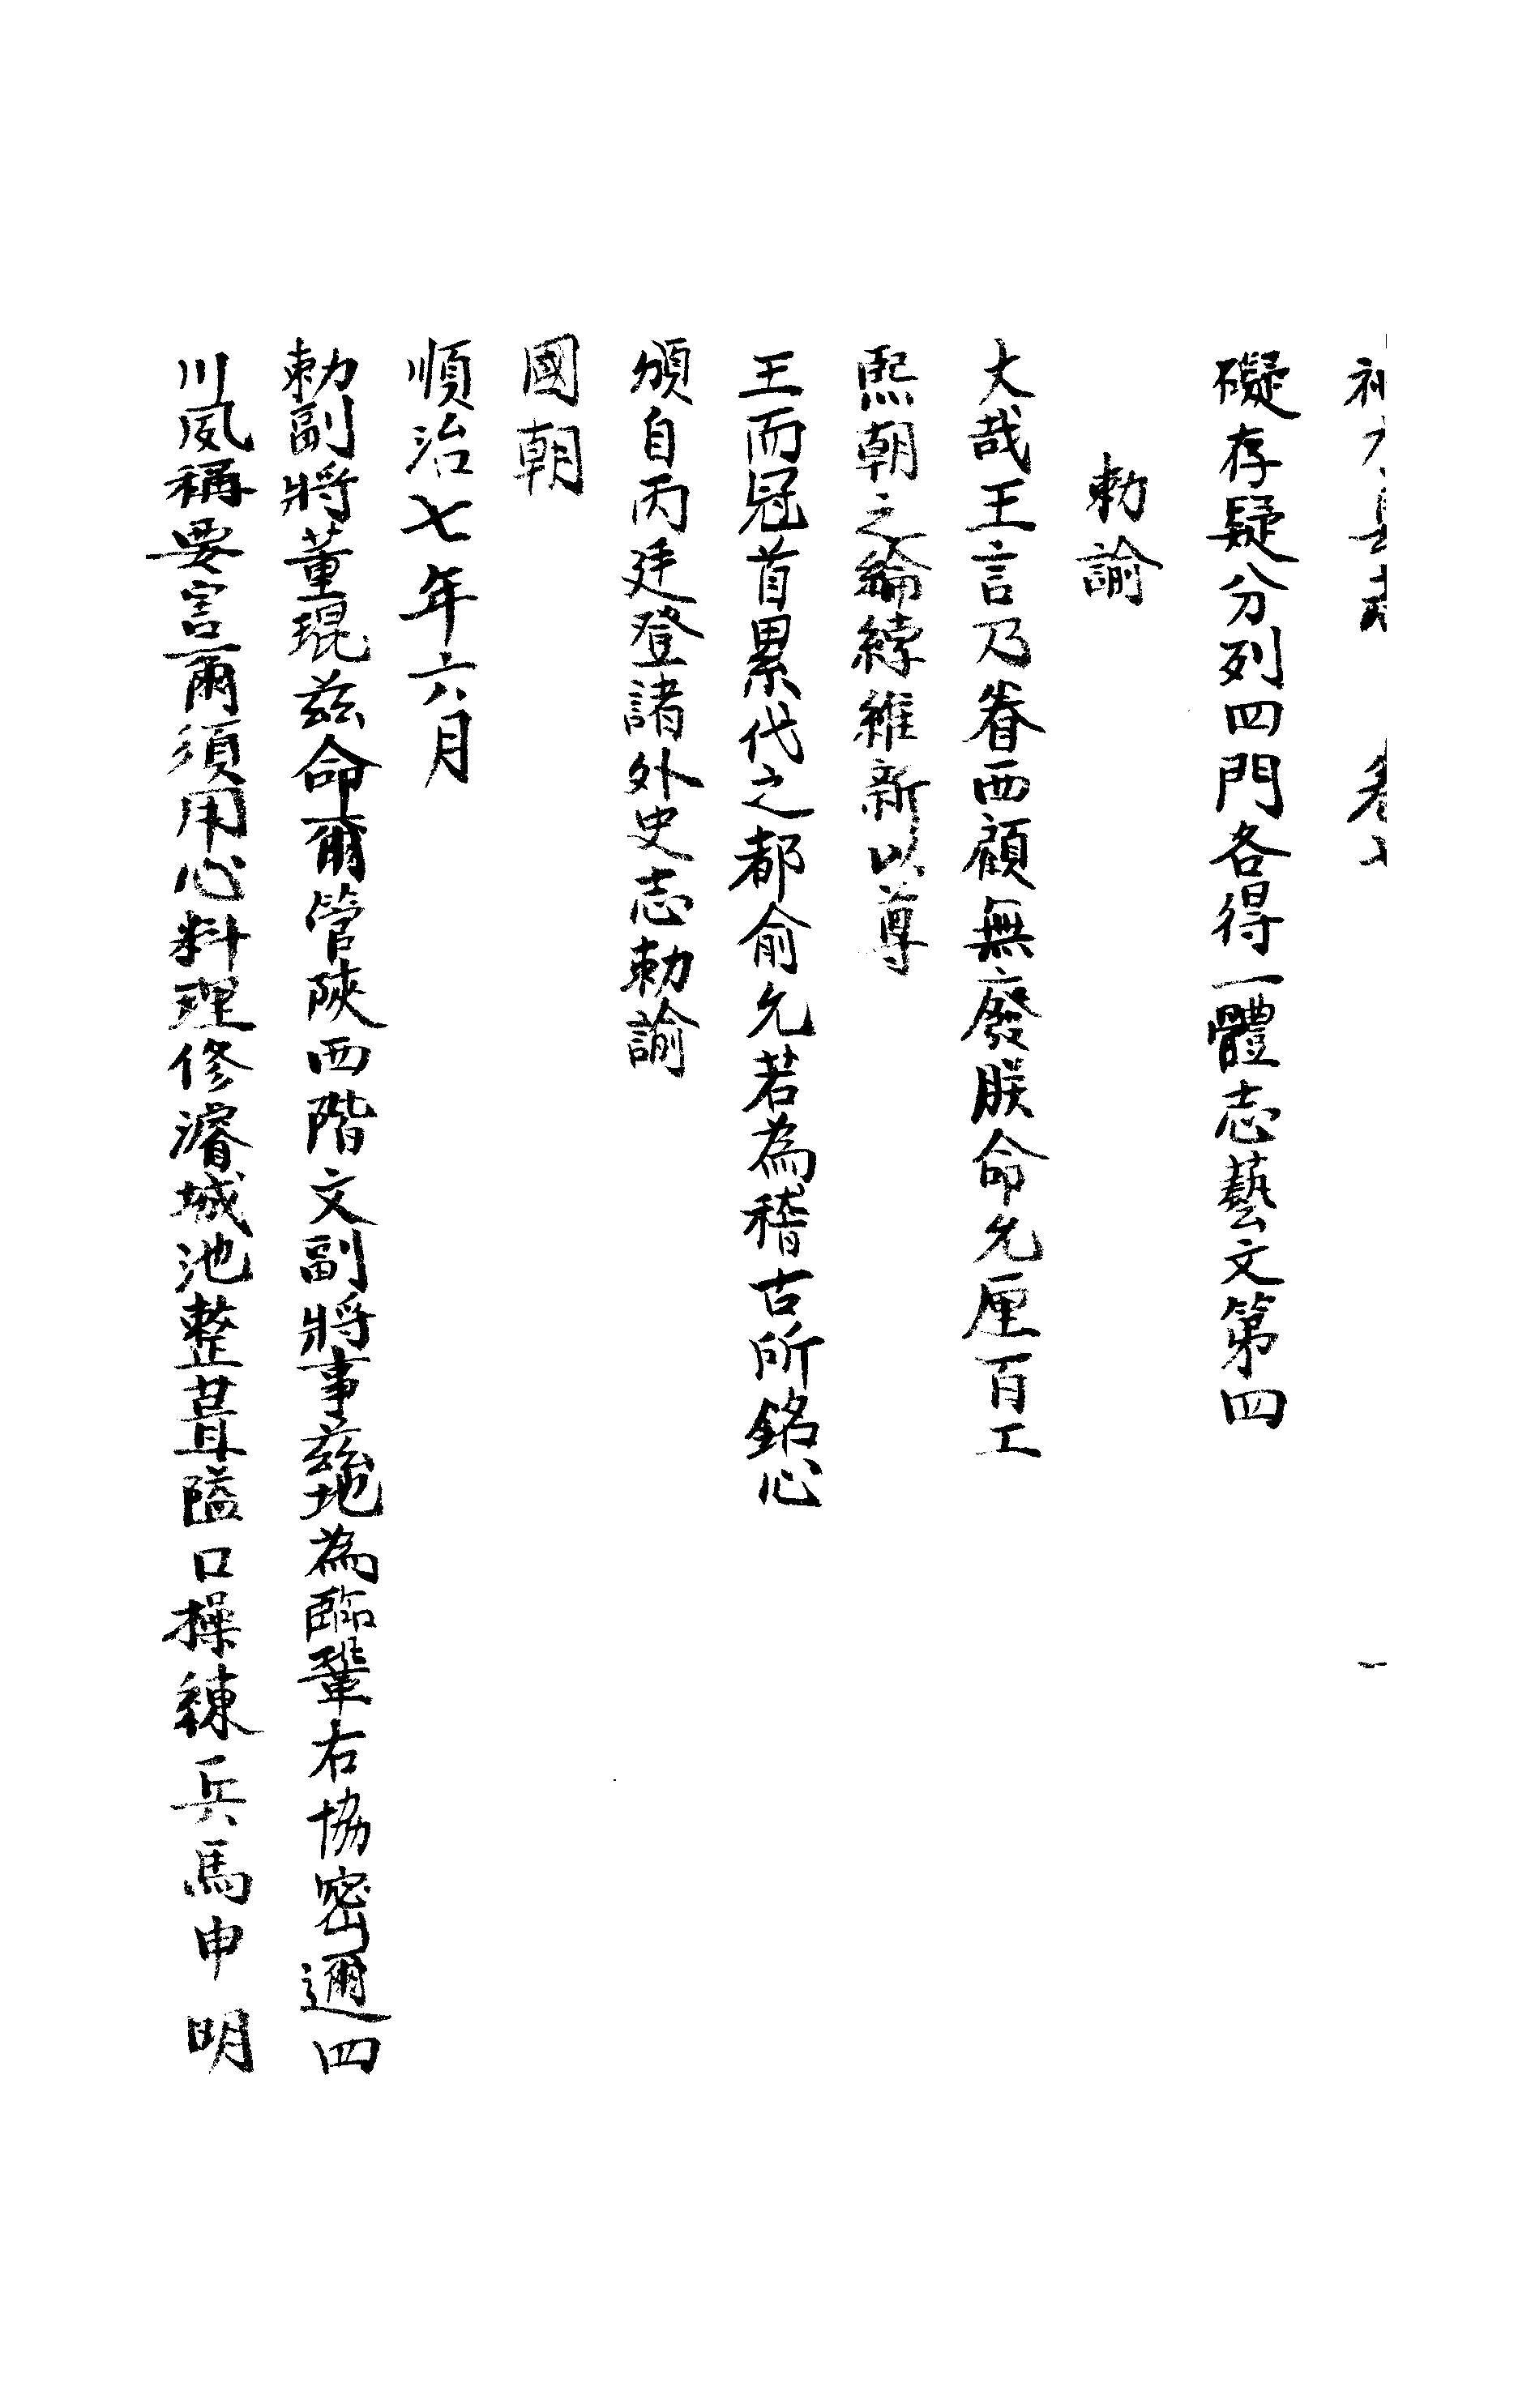 礙存疑分列四門各得一體志藝文第四
勅諭
大哉王言乃眷西顧無廢朕命允厘百工
熙朝之綸綍維新以尊
王而冠首累代之都俞允若為稽古所銘心
頒自丙廷登諸外史志勅諭
國朝
順治七年六月
勅副將董琨茲命爾管陝西階文副將事茲地為臨鞏右協密邇四
川夙稱要害爾須用心料理修濬城池整葺隘口操練兵馬申明